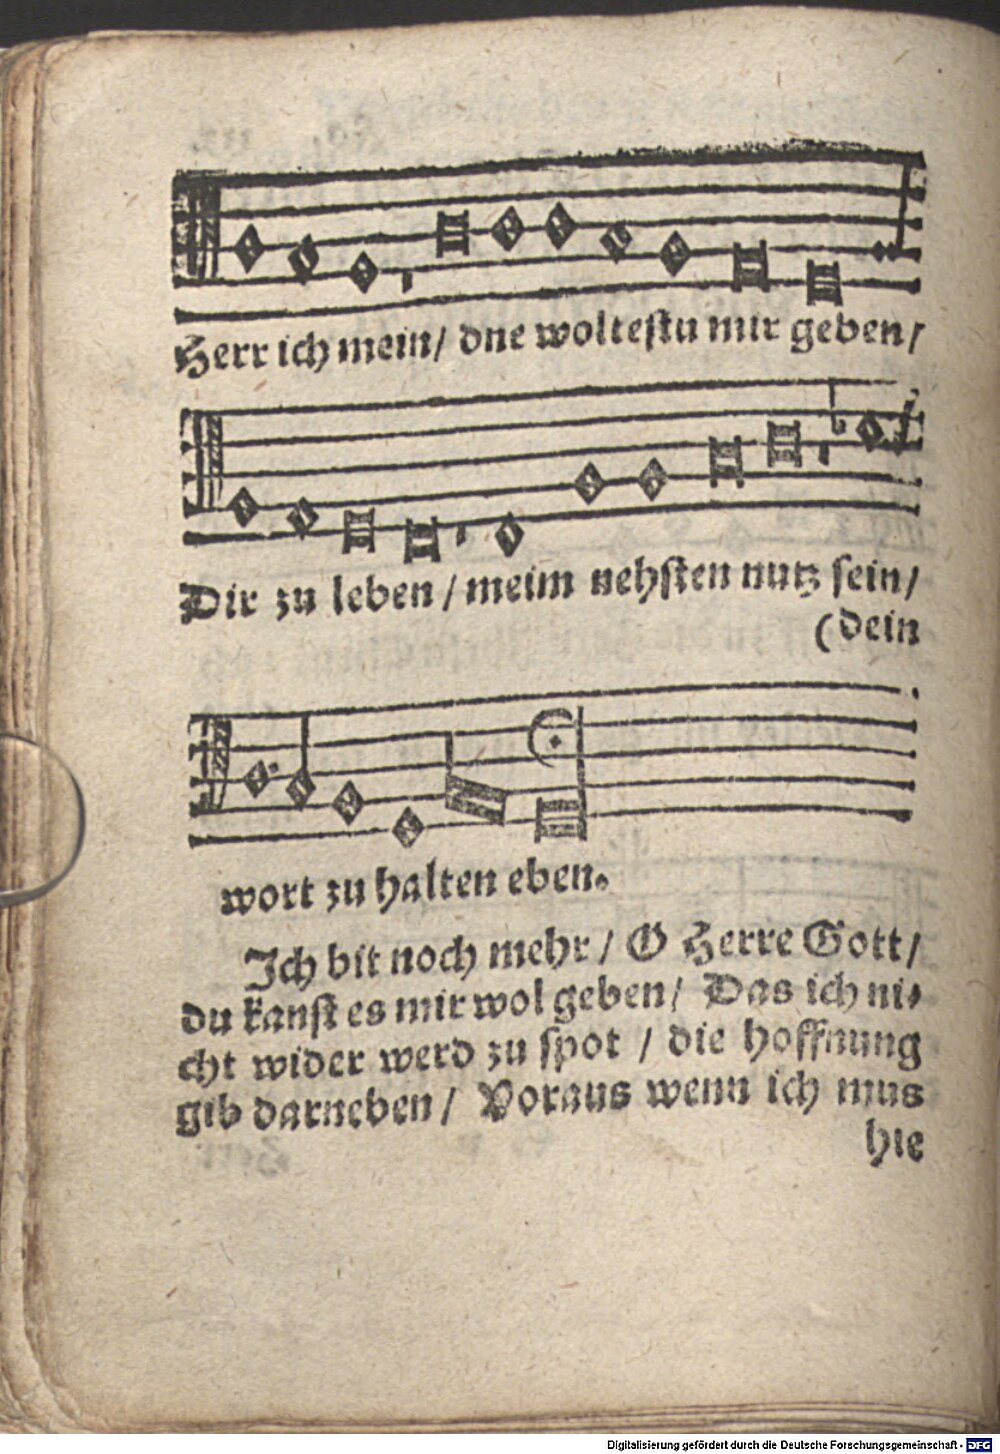 Herr ich mein/ dne woltestu mir geben/
Dir zu leben/ meim nehsten nutz sein/
(dein
wort zu halten eben.
Ich bit noch mehr/ O Herre Gott/
du kanst es mir wol geben/ Das ich ni⸗
cht wider werd zu spot / die hoffnung
gib darneben/ Voraus wenn ich mus
hie
Digitalisierung gefördert durch die Deutsche Forschungsgemeinschaft - DFG